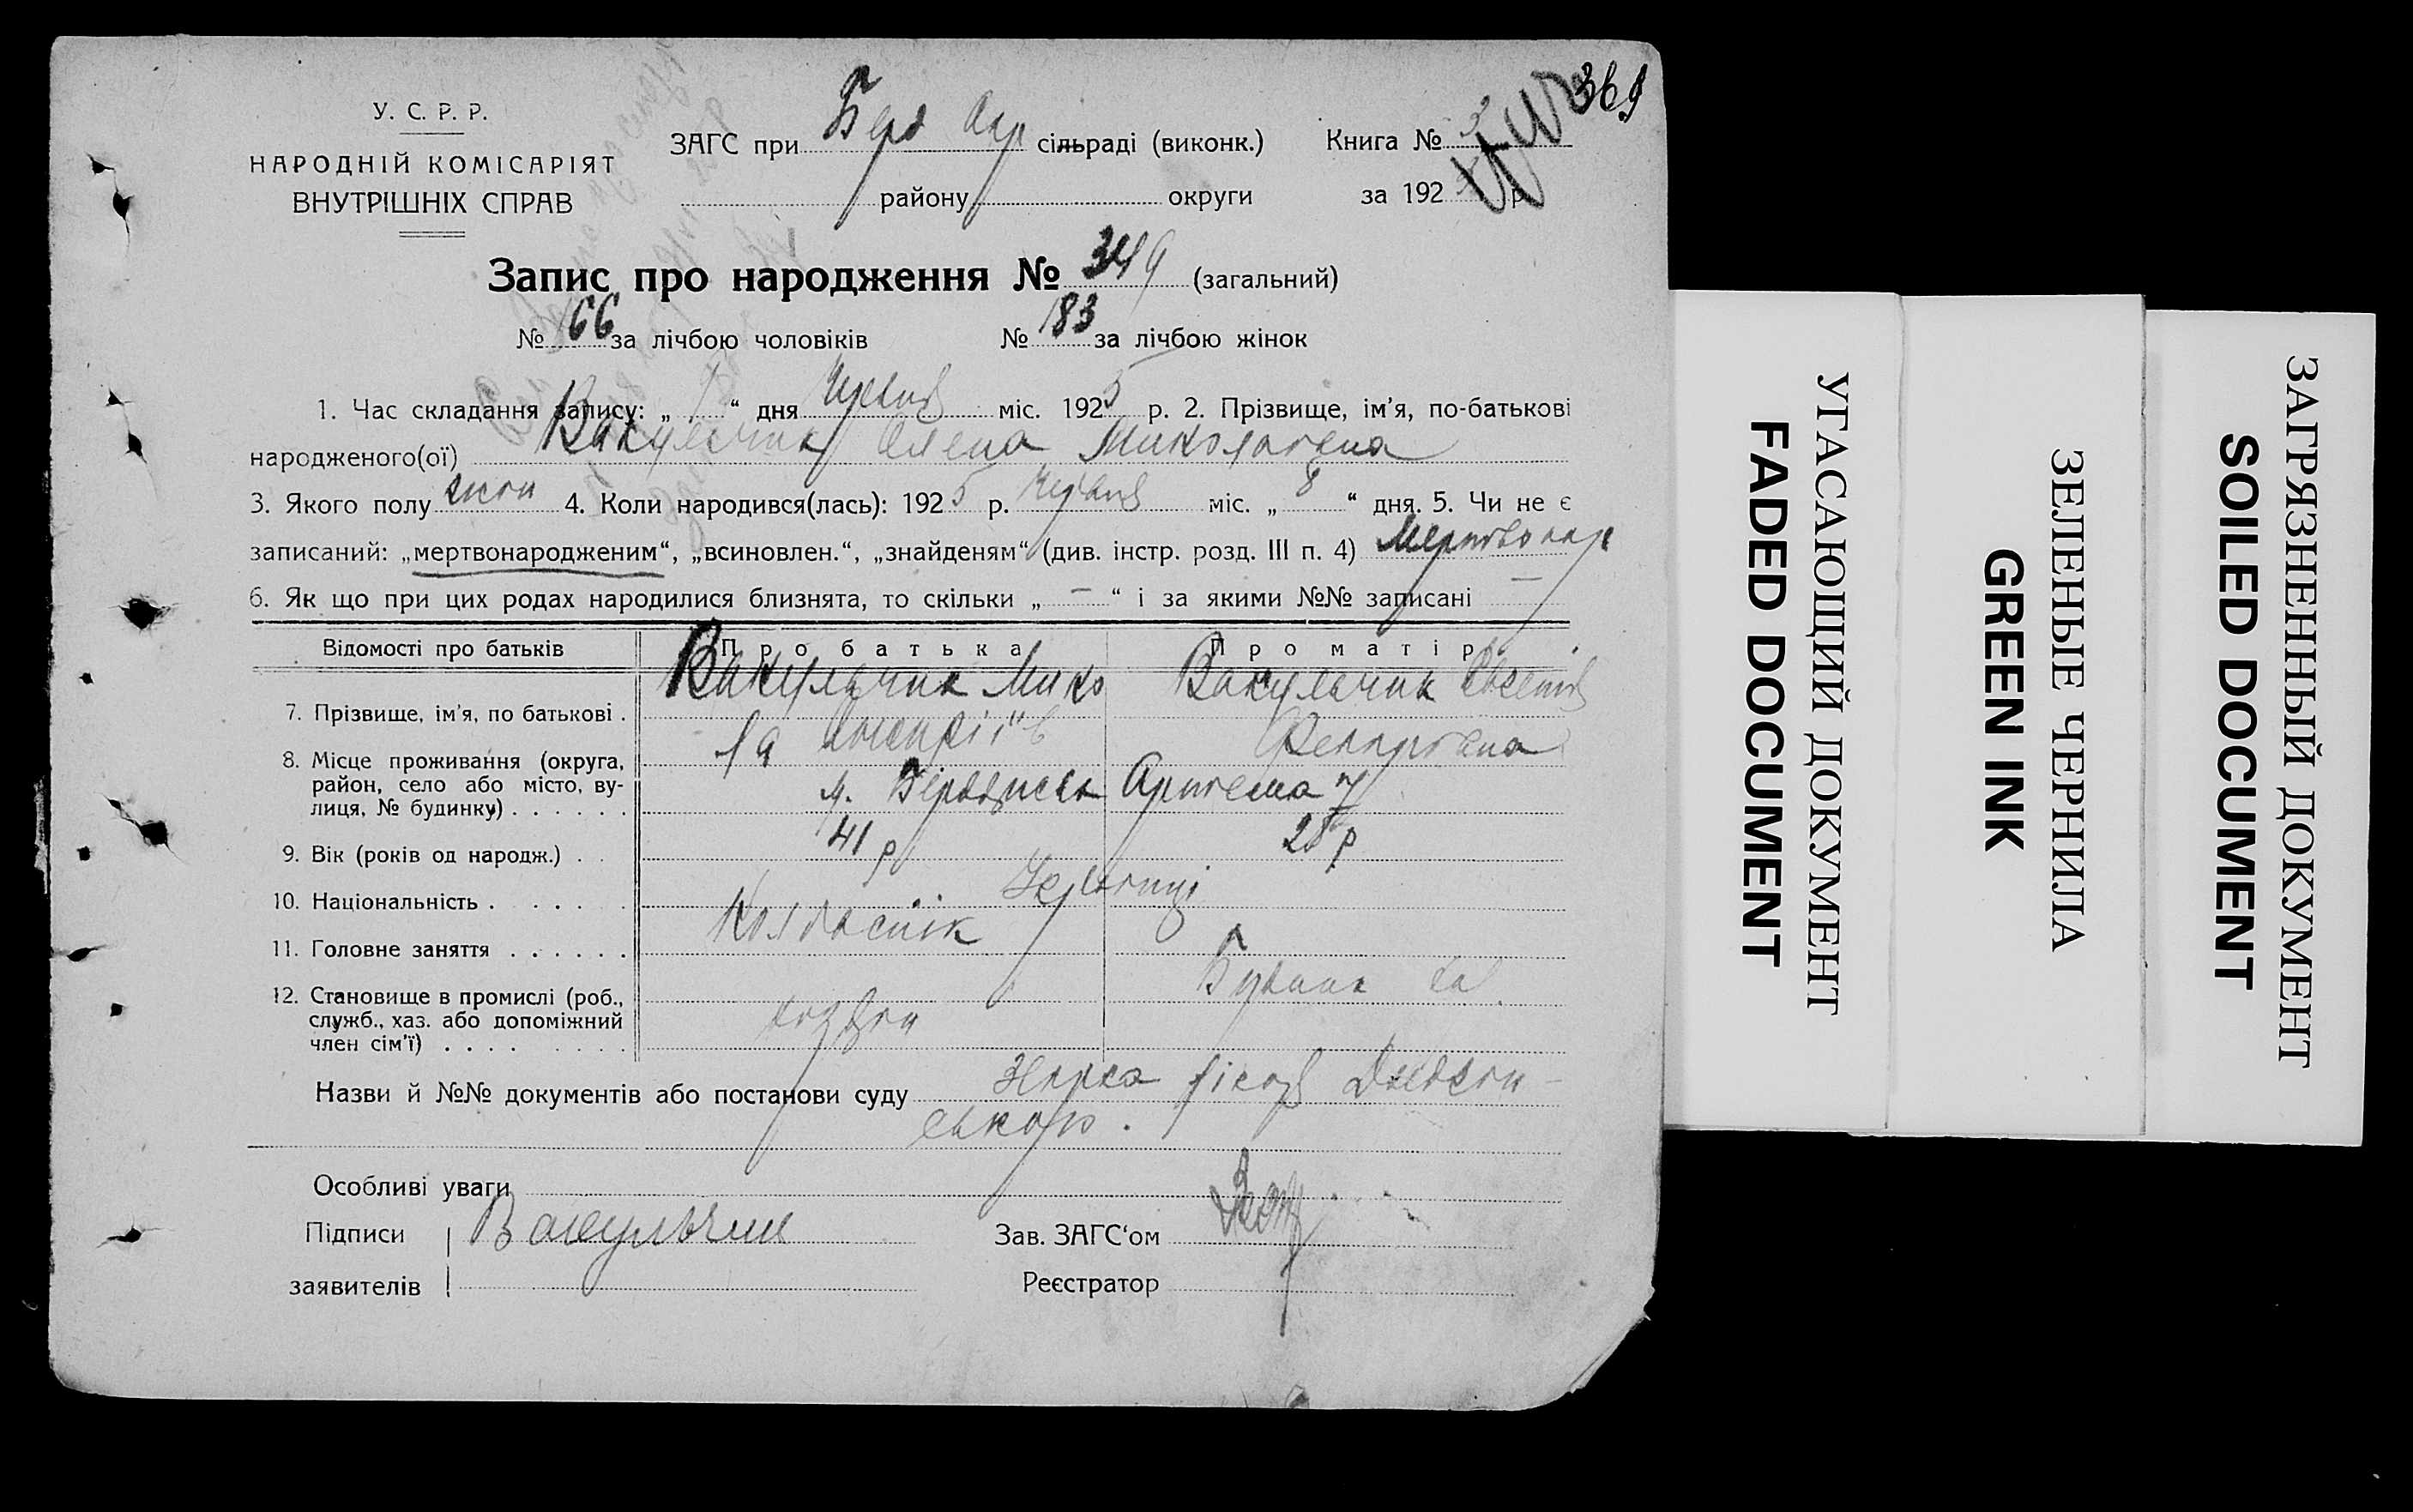 369
У. С. Р. Р.
НАРОДНІЙ КОМІСАРІЯТ
ВНУТРІШНІХ СПРАВ
ЗАГС при Берд Окр сільраді (виконк.) Книга № 3
району округи за 192 р.
Запис про народження № 349 (загальний)
№ 166 за лічбою чоловіків № 183 за лічбою жінок
1. Час складання запису: „ “ дня Червня міс. 1925 р. 2. Прізвище, ім’я, по-батькові
народженого(ої) Вакульчик Олена Миколаївна
3. Якого полу жін 4. Коли народився(лась): 1925 р. Червня міс. „ 8 “ дня. 5. Чи не є
записаний: „мертвонародженим“, „всиновлен.“, „знайденям“ (див. інстр. розд. III п. 4) Мертвонар
6. Як що при цих родах народилися близнята, то скільки „ — “ і за якими №№ записані —
Відомості про батьків Про батька Про матір
7. Прізвище, ім’я, по батькові . Вакульчик Мико Вакульчик Євгенія
ла
8. Місце проживання (округа, район, село або місто, вулиця, № будинку) . . . . . . м. Бердичев Артема 7
9. Вік (років од народж.) . . 41 р 28 р
10. Національність . . . . . Українці
11. Головне заняття . . . . . . Колбасник
12. Становище в промислі (роб., служб., хаз. або допоміжний член сім’ї) . . . . . . . .
Назви й №№ документів або постанови суду
ського.
Особливі уваги
Підписи Вакульчик Зав. ЗАГС‘ом
заявителів Реєстратор
УГАСАЮЩИЙ ДОКУМЕНТ
FADED DOCUMENT
ЗЕЛЕНЫЕ ЧЕРНИЛА
GREEN INK
ЗАГРЯЗНЕННЫЙ ДОКУМЕНТ
SOILED DOCUMENT